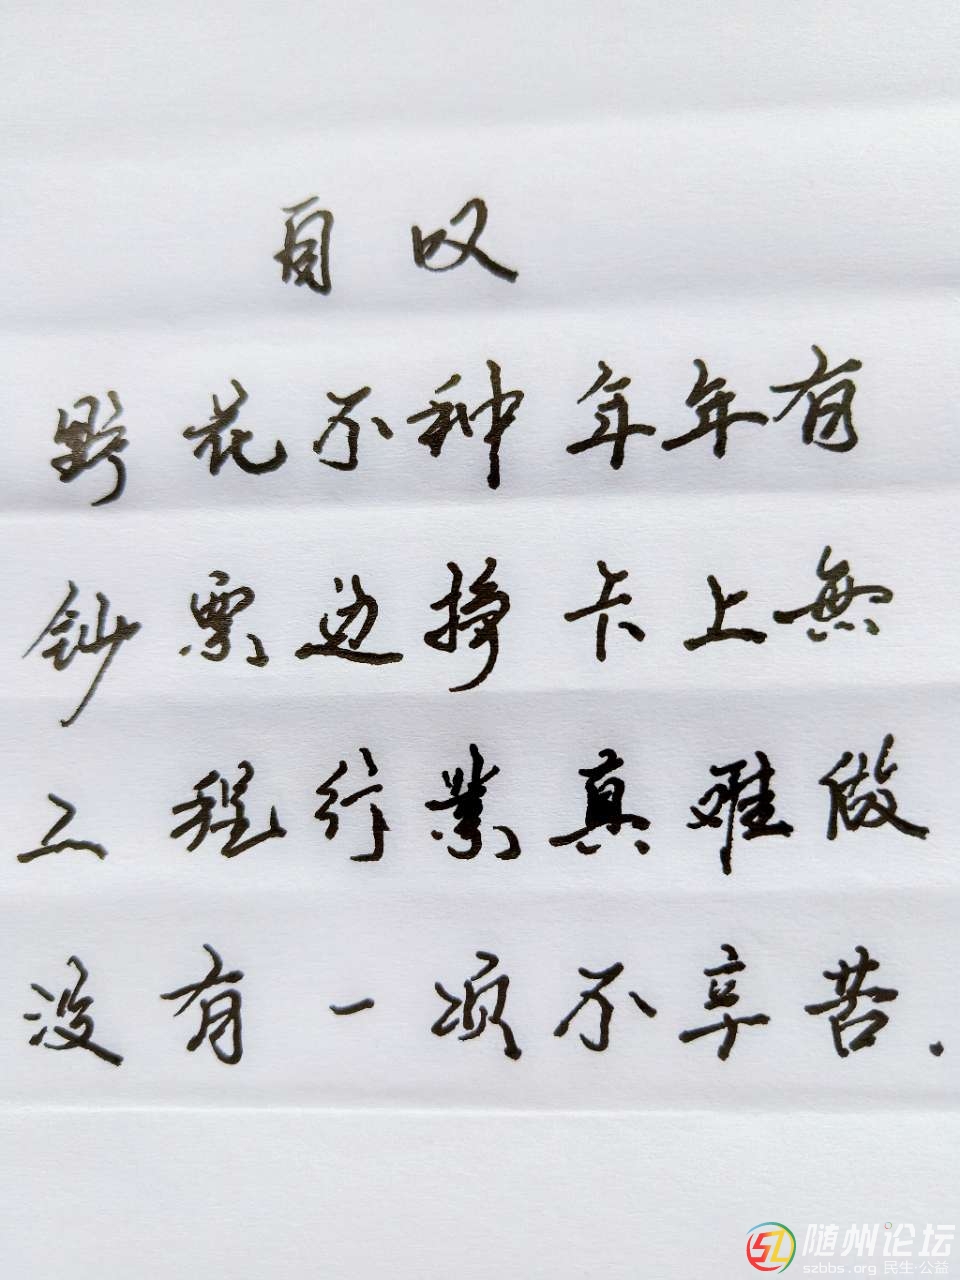 自叹
野花不种年年有
钞票边挣卡上無
工程行業真难做
没有一项不辛苦.
随州论坛
szbbs.org 民生·公益